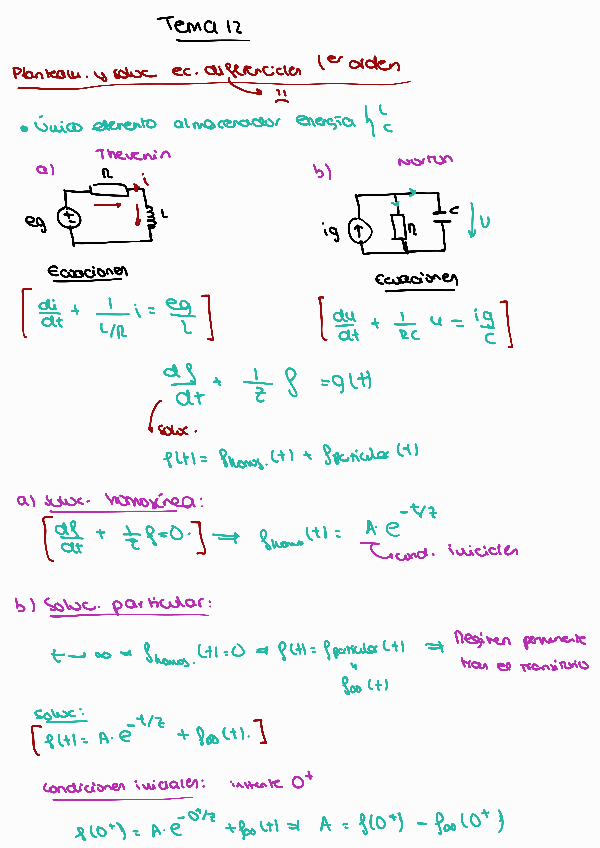 Tema 12
Planteam. y soluc ec. diferenciales 1er orden
• Único elemento almacenador energía { L C
a) Thevenin
R
i
eg
L
b) Norton
ig
R
C
u
Ecuaciones
[di/dt + 1/(L/R) i = eg/L]
Ecuaciones
[du/dt + 1/RC u = ig/C]
df/dt + 1/τ f = g(t)
soluc.
f(t) = fhomog.(t) + fparticular(t)
a) soluc. homogénea:
[df/dt + 1/τ f = 0.] ⇒ fhomo(t) = A · e^-t/τ
cond. iniciales
b) Soluc. particular:
t → ∞ ⇒ fhomog.(t) = 0 ⇒ f(t) = fparticular(t) ⇒ Régimen permanente
f∞(t)
tras el transitorio
soluc:
[f(t) = A · e^-t/τ + f∞(t).]
Condiciones iniciales: instante 0+
f(0+) = A · e^-0+/τ + f∞(t) ⇒ A = f(0+) - f∞(0+)